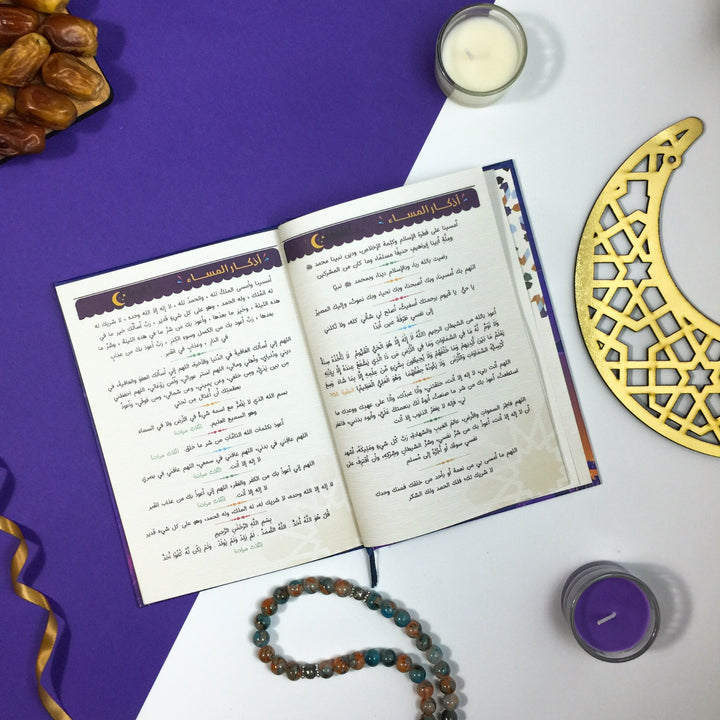 أذكار المساء
أمسينا على فطرة الإسلام وكلمة الإخلاص، ودين نبينا محمد ﷺ
وملّة أبينا إبراهيم، حنيفًا مسلمًا، وما كان من المشركين
رضيت بالله ربًا، وبالإسلام دينًا، وبمحمد ﷺ نبيًا
اللهم بك أمسينا، وبك أصبحنا، وبك نحيا، وبك نموت، وإليك المصير
يا حيّ، يا قيوم برحمتك أستغيث، أصلح لي شأني كله، ولا تكلني
إلى نفسي طرفة عين أبدًا
أعوذ بالله من الشيطان الرجيم {اللَّهُ لَا إِلَهَ إِلَّا هُوَ الْحَيُّ الْقَيُّومُ لَا تَأْخُذُهُ سِنَةٌ
وَلَا نَوْمٌ لَّهُ مَا فِي السَّمَاوَاتِ وَمَا فِي الْأَرْضِ مَن ذَا الَّذِي يَشْفَعُ عِندَهُ إِلَّا بِإِذْنِهِ
يَعْلَمُ مَا بَيْنَ أَيْدِيهِمْ وَمَا خَلْفَهُمْ وَلَا يُحِيطُونَ بِشَيْءٍ مِّنْ عِلْمِهِ إِلَّا بِمَا شَاءَ وَسِعَ
كُرْسِيُّهُ السَّمَاوَاتِ وَالْأَرْضَ وَلَا يَئُودُهُ حِفْظُهُمَا وَهُوَ الْعَلِيُّ الْعَظِيمُ}
اللهم أنت ربي، لا إله إلا أنت، خلقتني وأنا عبدك، وأنا على عهدك ووعدك ما
استطعت، أعوذ بك من شر ما صنعت، أبوء لك بنعمتك عليّ، وأبوء بذنبي، فاغفر
لي، فإنه لا يغفر الذنوب إلا أنت
اللهم فاطر السموات والأرض، عالم الغيب والشهادة، ربّ كل شيء ومليكه، أشهد
أن لا إله إلا أنت، أعوذ بك من شرّ نفسي، وشرّ الشيطان وشركه، وأن أقترف على
نفسي سوءًا، أو أجرّه إلى مسلم
اللهم ما أمسى بي من نعمة أو بأحد من خلقك فمنك وحدك
لا شريك لك، فلك الحمد ولك الشكر
أذكار المساء
أمسينا وأمسى الملك لله ، والحمد لله ، لا إله إلا الله وحده ، لا شريك له
له الملك ، وله الحمد ، وهو على كل شيء قدير ، ربّ أسألك خير ما في
هذه الليلة ، وخير ما بعدها ، وأعوذ بك من شر ما في هذه الليلة ، وشر ما
بعدها ، ربّ أعوذ بك من الكسل وسوء الكبر ، ربّ أعوذ بك من عذاب
في النار ، وعذاب في القبر
اللهم إني أسألك العافية في الدنيا والآخرة، اللهم إني أسألك العفو والعافية، في
ديني ودنياي، وأهلي ومالي، اللهم استر عوراتي، وآمن روعاتي، اللهم احفظني
من بين يديّ، ومن خلفي، وعن يميني، وعن شمالي، ومن فوقي، وأعوذ
بعظمتك أن أغتال من تحتي
بسم الله الذي لا يضرّ مع اسمه شيءٌ في الأرض ولا في السماء
وهو السميع العليم. (ثلاث مرات)
أعوذ بكلمات الله التامّات من شر ما خلق. (ثلاث مرات)
اللهم عافني في بدني، اللهم عافني في سمعي، اللهم عافني في بصري
لا إله إلا أنت. (ثلاث مرات)
اللهم إني أعوذ بك من الكفر والفقر، اللهم إني أعوذ بك من عذاب القبر
لا إله إلا أنت. (ثلاث مرات)
لا إله إلا الله وحده، لا شريك له، له الملك، وله الحمد، وهو على كل شيء قدير
بِسْمِ اللَّهِ الرَّحْمَٰنِ الرَّحِيمِ
قُلْ هُوَ اللَّهُ أَحَدٌ . اللَّهُ الصَّمَدُ . لَمْ يَلِدْ وَلَمْ يُولَدْ . وَلَمْ يَكُن لَّهُ كُفُوًا أَحَدٌ
(ثلاث مرات)